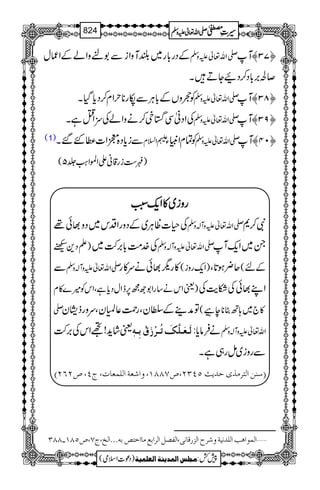 سیرتِ مصطفی صلی اللہ تعالٰی علیہ وسلم 824
﴿۳۷﴾ آپ صلی اللہ تعالٰی علیہ وسلم کے دربار میں بلند آواز سے بولنے والے کے اعمال
صالحہ برباد کر دئیے جاتے ہیں۔
﴿۳۸﴾ آپ صلی اللہ تعالٰی علیہ وسلم کو حجروں کے باہر سے پکارنا حرام کر دیا گیا۔
﴿۳۹﴾ آپ صلی اللہ تعالٰی علیہ وسلم کی ادنیٰ سی گستاخی کرنے والے کی سزا قتل ہے۔
﴿۴۰﴾ آپ صلی اللہ تعالٰی علیہ وسلم کو تمام انبیا علیہم السلام سے زیادہ معجزات عطا کئے گئے۔ (1)
(فہرست زرقانی علی المواہب جلد ۵)
روزی کا ایک سبب
نبی کریم صلی اللہ تعالٰی علیہ وآلہ وسلم کی حیاتِ ظاہری کے دور اقدس میں دو بھائی تھے
جن میں ایک آپ صلی اللہ تعالٰی علیہ وآلہ وسلم کی خدمتِ بابرکت میں (علم دین سیکھنے
کے لئے) حاضر ہوتا، (ایک روز) کاریگر بھائی نے سرکار صلی اللہ تعالٰی علیہ وآلہ وسلم سے
اپنے بھائی کی شکایت کی (یعنی اس نے سارا بوجھ مجھ پر ڈال دیا ہے، اس کو میرے کام
کاج میں ہاتھ بٹانا چاہئے) تو مدینے کے سلطان، رحمتِ عالمیان، سرورِ ذیشان صلی
اللہ تعالٰی علیہ وآلہ وسلم نے فرمایا: لَعَلَّکَ تُرْزَقُ بِہٖ یعنی شاید! تجھے اس کی برکت
سے روزی مل رہی ہے۔
(سنن الترمذی حدیث ۲۳۴۵، ص۱۸۸۷، واشعۃ اللمعات، ج٤، ص۲٦۲)
.....المواہب اللدنیۃ وشرح الزرقانی، الفصل الرابع مااختص بہ...الخ، ج۷، ص۱۸۵۔۳۸۸
پیش کش: مجلس المدینۃ العلمیۃ (دعوتِ اسلامی)